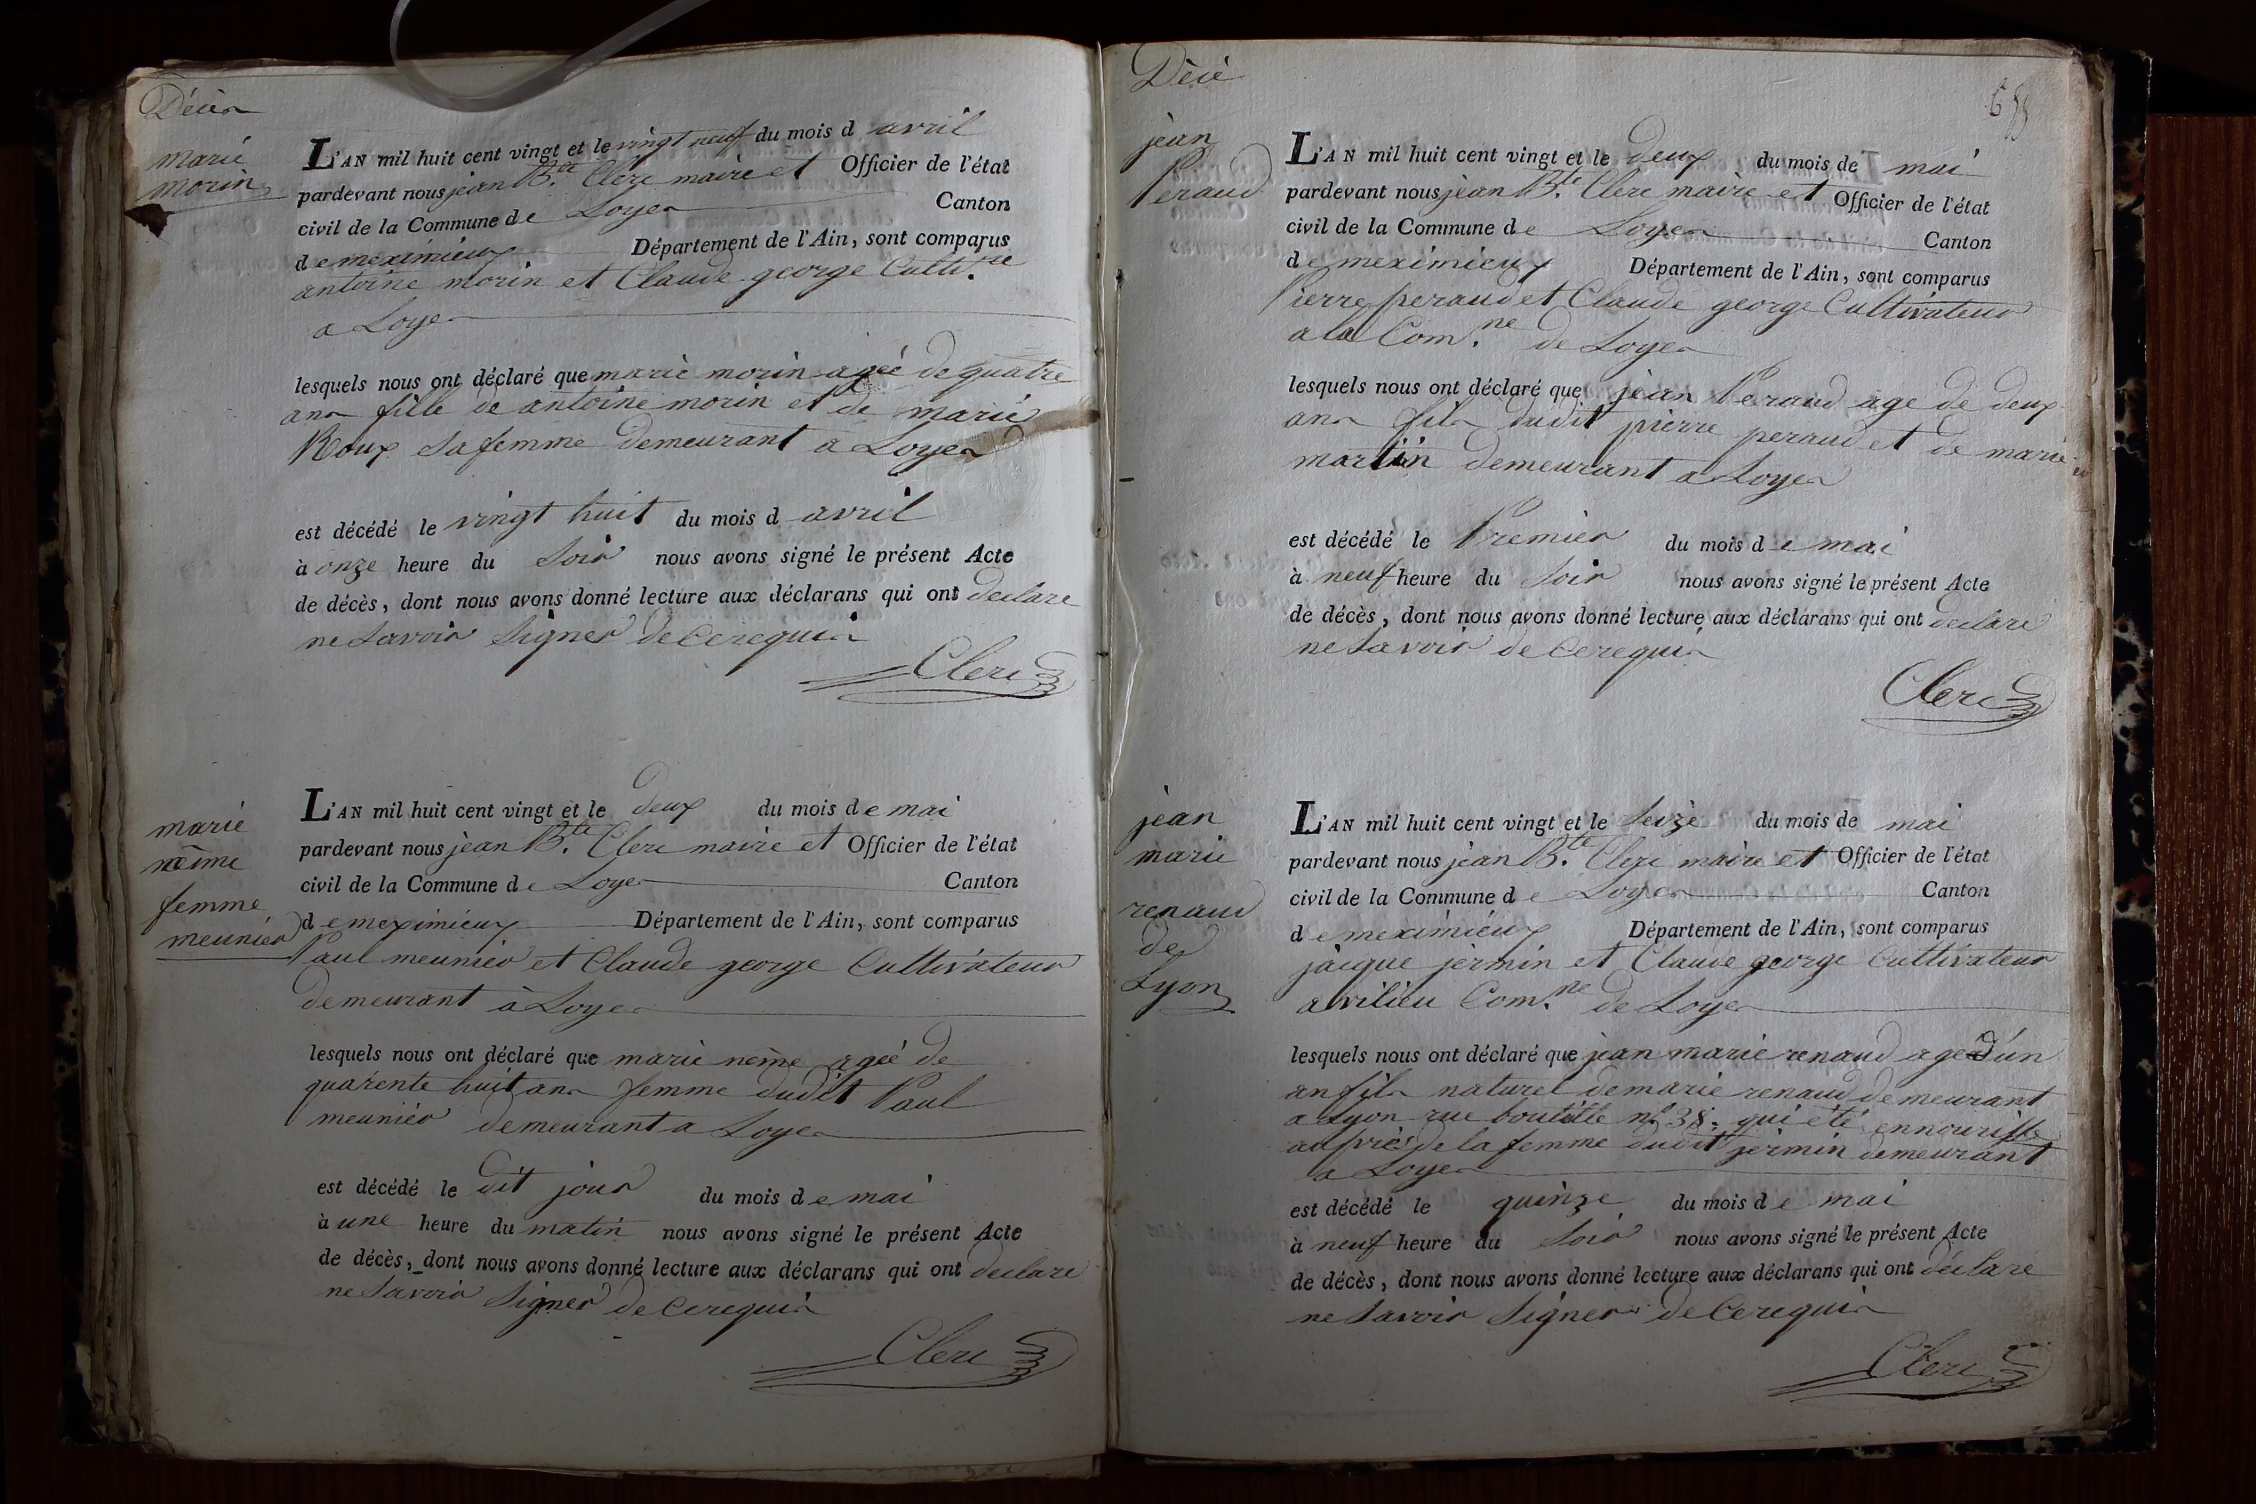 Décès
marie
morin
L'AN mil huit cent vingt et le vingt neuf du mois d avril
pardevant nous jean Bte. Clerc maire et Officier de l'état
civil de la Commune de Loyes Canton
de meximieux Département de l'Ain, sont comparus
antoine morin et Claude george Culti.re
a Loyes
lesquels nous ont déclaré que marie morin agée de quatre
ans fille de antoine morin et de marie
Roux sa femme demeurant a Loyes
est décédé le vingt huit du mois d avril
à onze heure du soir nous avons signé le présent Acte
de décès, dont nous avons donné lecture aux déclarans qui ont declare
ne savoir signer de Ce requis
Clerc
marie
nême
femme
meunier
L'AN mil huit cent vingt et le deux du mois de mai
pardevant nous jean Bte. Clerc maire et Officier de l'état
civil de la Commune de Loyes Canton
de meximieux Département de l'Ain, sont comparus
Paul meunier et Claude george Cultivateur
demeurant à Loyes
lesquels nous ont déclaré que marie nême agée de
quarente huit ans femme dudit Paul
meunier demeurant a Loyes
est décédé le dit jour du mois de mai
à une heure du matin nous avons signé le présent Acte
de décès, dont nous avons donné lecture aux déclarans qui ont declare
ne savoir signer de Ce requis
Clerc
Décè
jean
Peraud
L'AN mil huit cent vingt et le deux du mois de mai
pardevant nous jean Bte. Clerc maire et Officier de l'état
civil de la Commune de Loyes Canton
de meximieux Département de l'Ain, sont comparus
Pierre peraud et Claude george Cultivateur
a la Com.ne de Loyes
lesquels nous ont déclaré que jean Peraud age de deux
ans fils dudit pierre peraud et de marie
martin demeurant a Loyes
est décédé le Premier du mois de mai
à neuf heure du soir nous avons signé le présent Acte
de décès, dont nous avons donné lecture aux déclarans qui ont declaré
ne savoir de Ce requis
Clerc
jean
marie
renaud
de
Lyon
L'AN mil huit cent vingt et le seize du mois de mai
pardevant nous jean Bte. Clerc maire et Officier de l'état
civil de la Commune de Loyes Canton
de meximieux Département de l'Ain, sont comparus
jacque jermin et Claude george Cultivateur
a vilieu Com.ne de Loyes
lesquels nous ont déclaré que jean marie renaud age d'un
an fils naturel de marie renaud demeurant
a Lyon rue bouteille no. 38. qui été en nourisse
auprès de la femme dudit jermin demeurant
a Loyes
est décédé le quinze du mois de mai
à neuf heure du soir nous avons signé le présent Acte
de décès, dont nous avons donné lecture aux déclarans qui ont déclare
ne savoir signer de Ce requis
Clerc